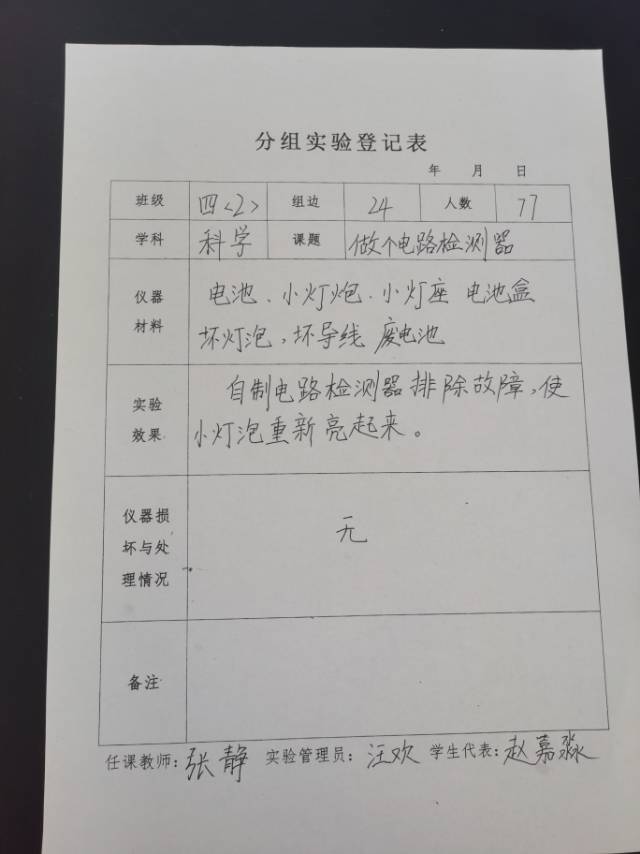 分组实验登记表
年 月 日
班级 四<2> 组边 24 人数 77
学科 科学 课题 做个电路检测器
仪器 电池、小灯炮、小灯座 电池盒
材料 坏灯泡,坏导线 废电池
实验 自制电路检测器排除故障,使
效果 小灯泡重新亮起来。
仪器损
坏与处 无
理情况
备注
任课教师:张静 实验管理员:汪欢 学生代表:赵嘉淼